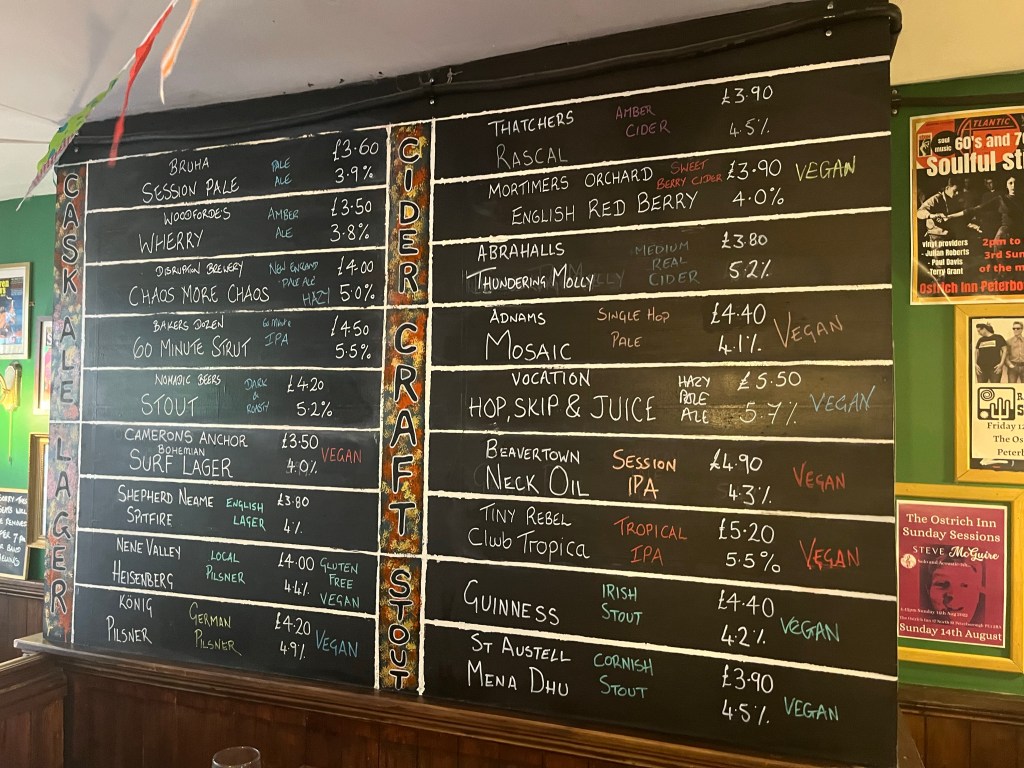 CASK ALE
BRUHA PALE £3.60
SESSION PALE ALE 3.9%
WOODFORDES AMBER £3.50
WHERRY ALE 3.8%
DISRUPTION BREWERY NEW ENGLAND £4.00
CHAOS MORE CHAOS PALE ALE HAZY 5.0%
BAKERS DOZEN 60 MINUTE £4.50
60 MINUTE STRUT IPA 5.5%
NOMADIC BEERS DARK £4.20
STOUT & ROASTY 5.2%
LAGER
CAMERONS ANCHOR £3.50
BOHEMIAN
SURF LAGER 4.0% VEGAN
SHEPHERD NEAME ENGLISH £3.80
SPITFIRE LAGER 4%
NENE VALLEY LOCAL £4.00 GLUTEN
HEISENBERG PILSNER 4.4% FREE
VEGAN
KÖNIG GERMAN £4.20
PILSNER PILSNER 4.9% VEGAN
CIDER
THATCHERS AMBER £3.90
RASCAL CIDER 4.5%
MORTIMERS ORCHARD SWEET £3.90 VEGAN
ENGLISH RED BERRY BERRY CIDER 4.0%
ABRAHALLS MEDIUM £3.80
THUNDERING MOLLY REAL CIDER 5.2%
CRAFT
ADNAMS SINGLE HOP £4.40
MOSAIC PALE 4.1% VEGAN
VOCATION HAZY £5.50
HOP, SKIP & JUICE PALE ALE 5.7% VEGAN
BEAVERTOWN SESSION £4.90
NECK OIL IPA 4.3% VEGAN
TINY REBEL TROPICAL £5.20
Club Tropica IPA 5.5% VEGAN
STOUT
GUINNESS IRISH £4.40
STOUT 4.2% VEGAN
ST AUSTELL CORNISH £3.90
MENA DHU STOUT 4.5% VEGAN
ATLANTIC
soul music 60's and 7
Soulful st
vinyl providers
- Julian Roberts
- Paul Davis
Terry Grant
2pm to
3rd Sun
of the m
Ostrich Inn Peterbo
Friday 12
The Os
Peterb
The Ostrich Inn
Sunday Sessions
STEVE McGuire
Sunday 14th August